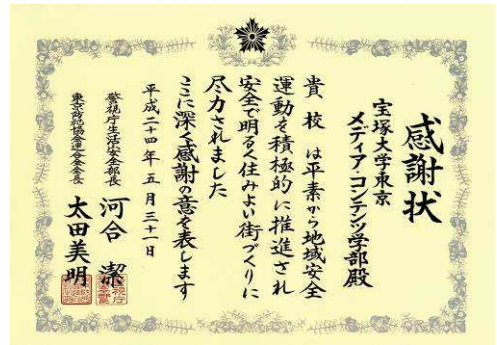 感謝状
宝塚大学東京
メディア・コンテンツ学部殿
貴校は平素から地域安全
運動を積極的に推進され
安全で明るく住みよい街づくりに
尽力されました
ここに深く感謝の意を表します
平成二十四年五月三十一日
警視庁生活安全部長 河合潔
東京防犯協会連合会会長 太田美明